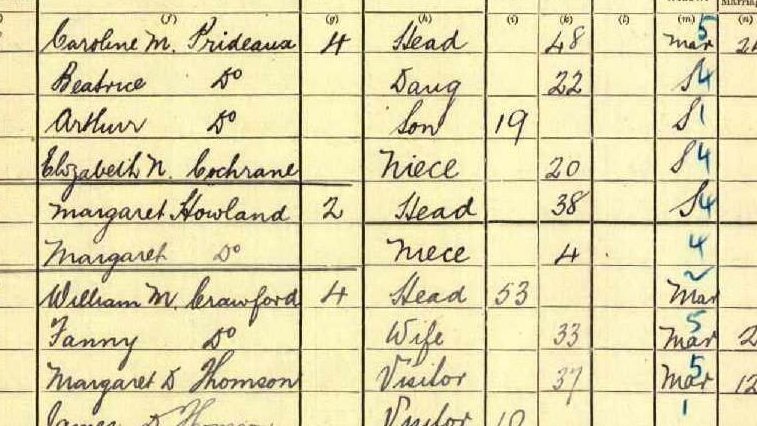 (f) (g) (h) (i) (k) (l) (m) (n)
Caroline M. Prideaux 4 Head 48 Mar 5
Beatrice Do Daug 22 S 4
Arthur Do Son 19 S 1
Elizabeth N. Cochrane Niece 20 S 4
Margaret Howland 2 Head 38 S 4
Margaret Do Niece 4 4
William M. Crawford 4 Head 53 Mar 2
Fanny Do Wife 33 Mar 5 2
Margaret D Thomson Visitor 37 Mar 5 12
James D Thomson Visitor 10 1